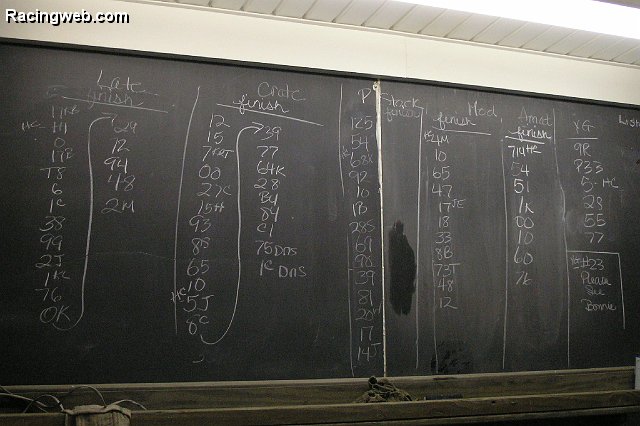 Racingweb.com
Late
finish
H1
0
T8
6
1c
38
99
2J
76
OK
29
12
94
48
2M
Crate
finish
12
15
00
27c
15H
93
65
10
5J
39
77
64K
28
84
C1
75 DNS
1c DNS
P
125
54
92
10
1B
28S
39
81
17
14J
Stock
finish
Mod
finish
4M
10
65
47
17
18
33
8B
48
12
finish
714
54
51
1K
00
10
60
YG
9R
P33
5 HC
28
55
77
23
Please
See
Bonnie